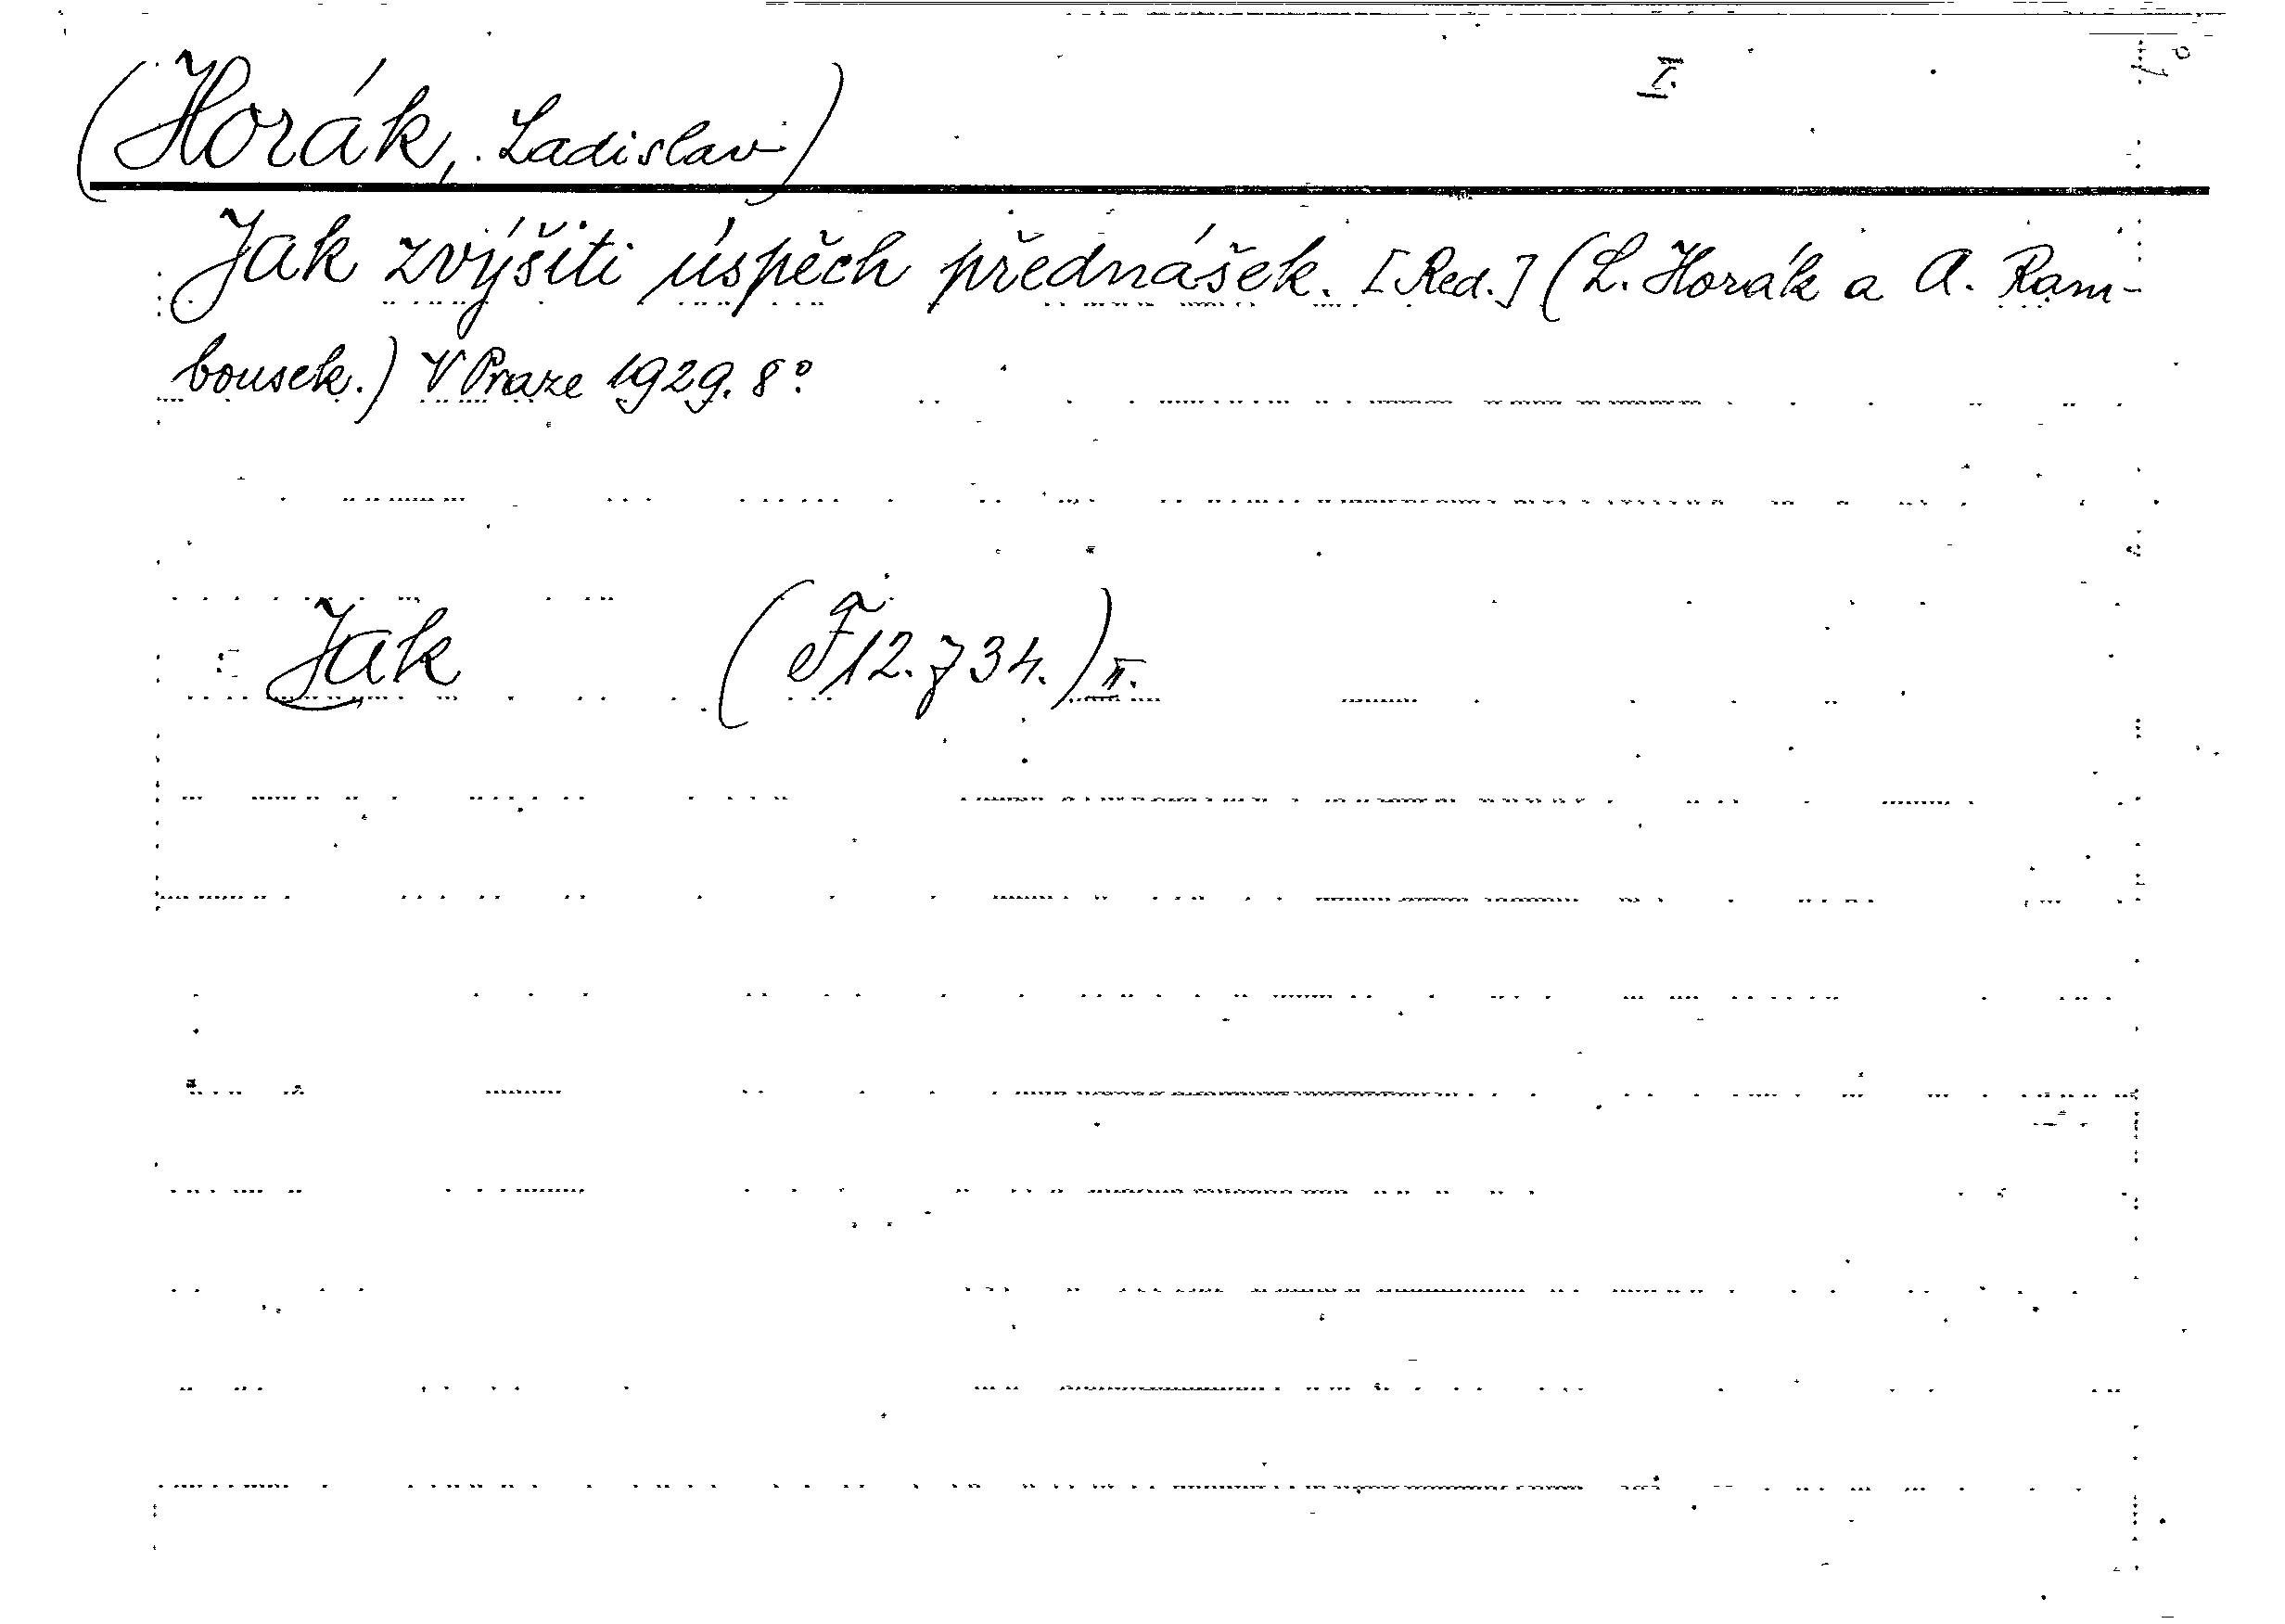 (Horák, Ladislav) I.
Jak zvýšiti úspěch přednášek. [Red.] (L. Horák a A. Ram-
bousek.) V Praze 1929. 8°.
Jak (F 12.734.) II.